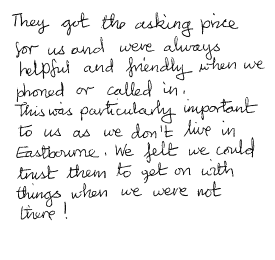 They got the asking price
for us and were always
helpful and friendly when we
phoned or called in.
This was particularly important
to us as we don't live in
Eastbourne. We felt we could
trust them to get on with
things when we were not
there!